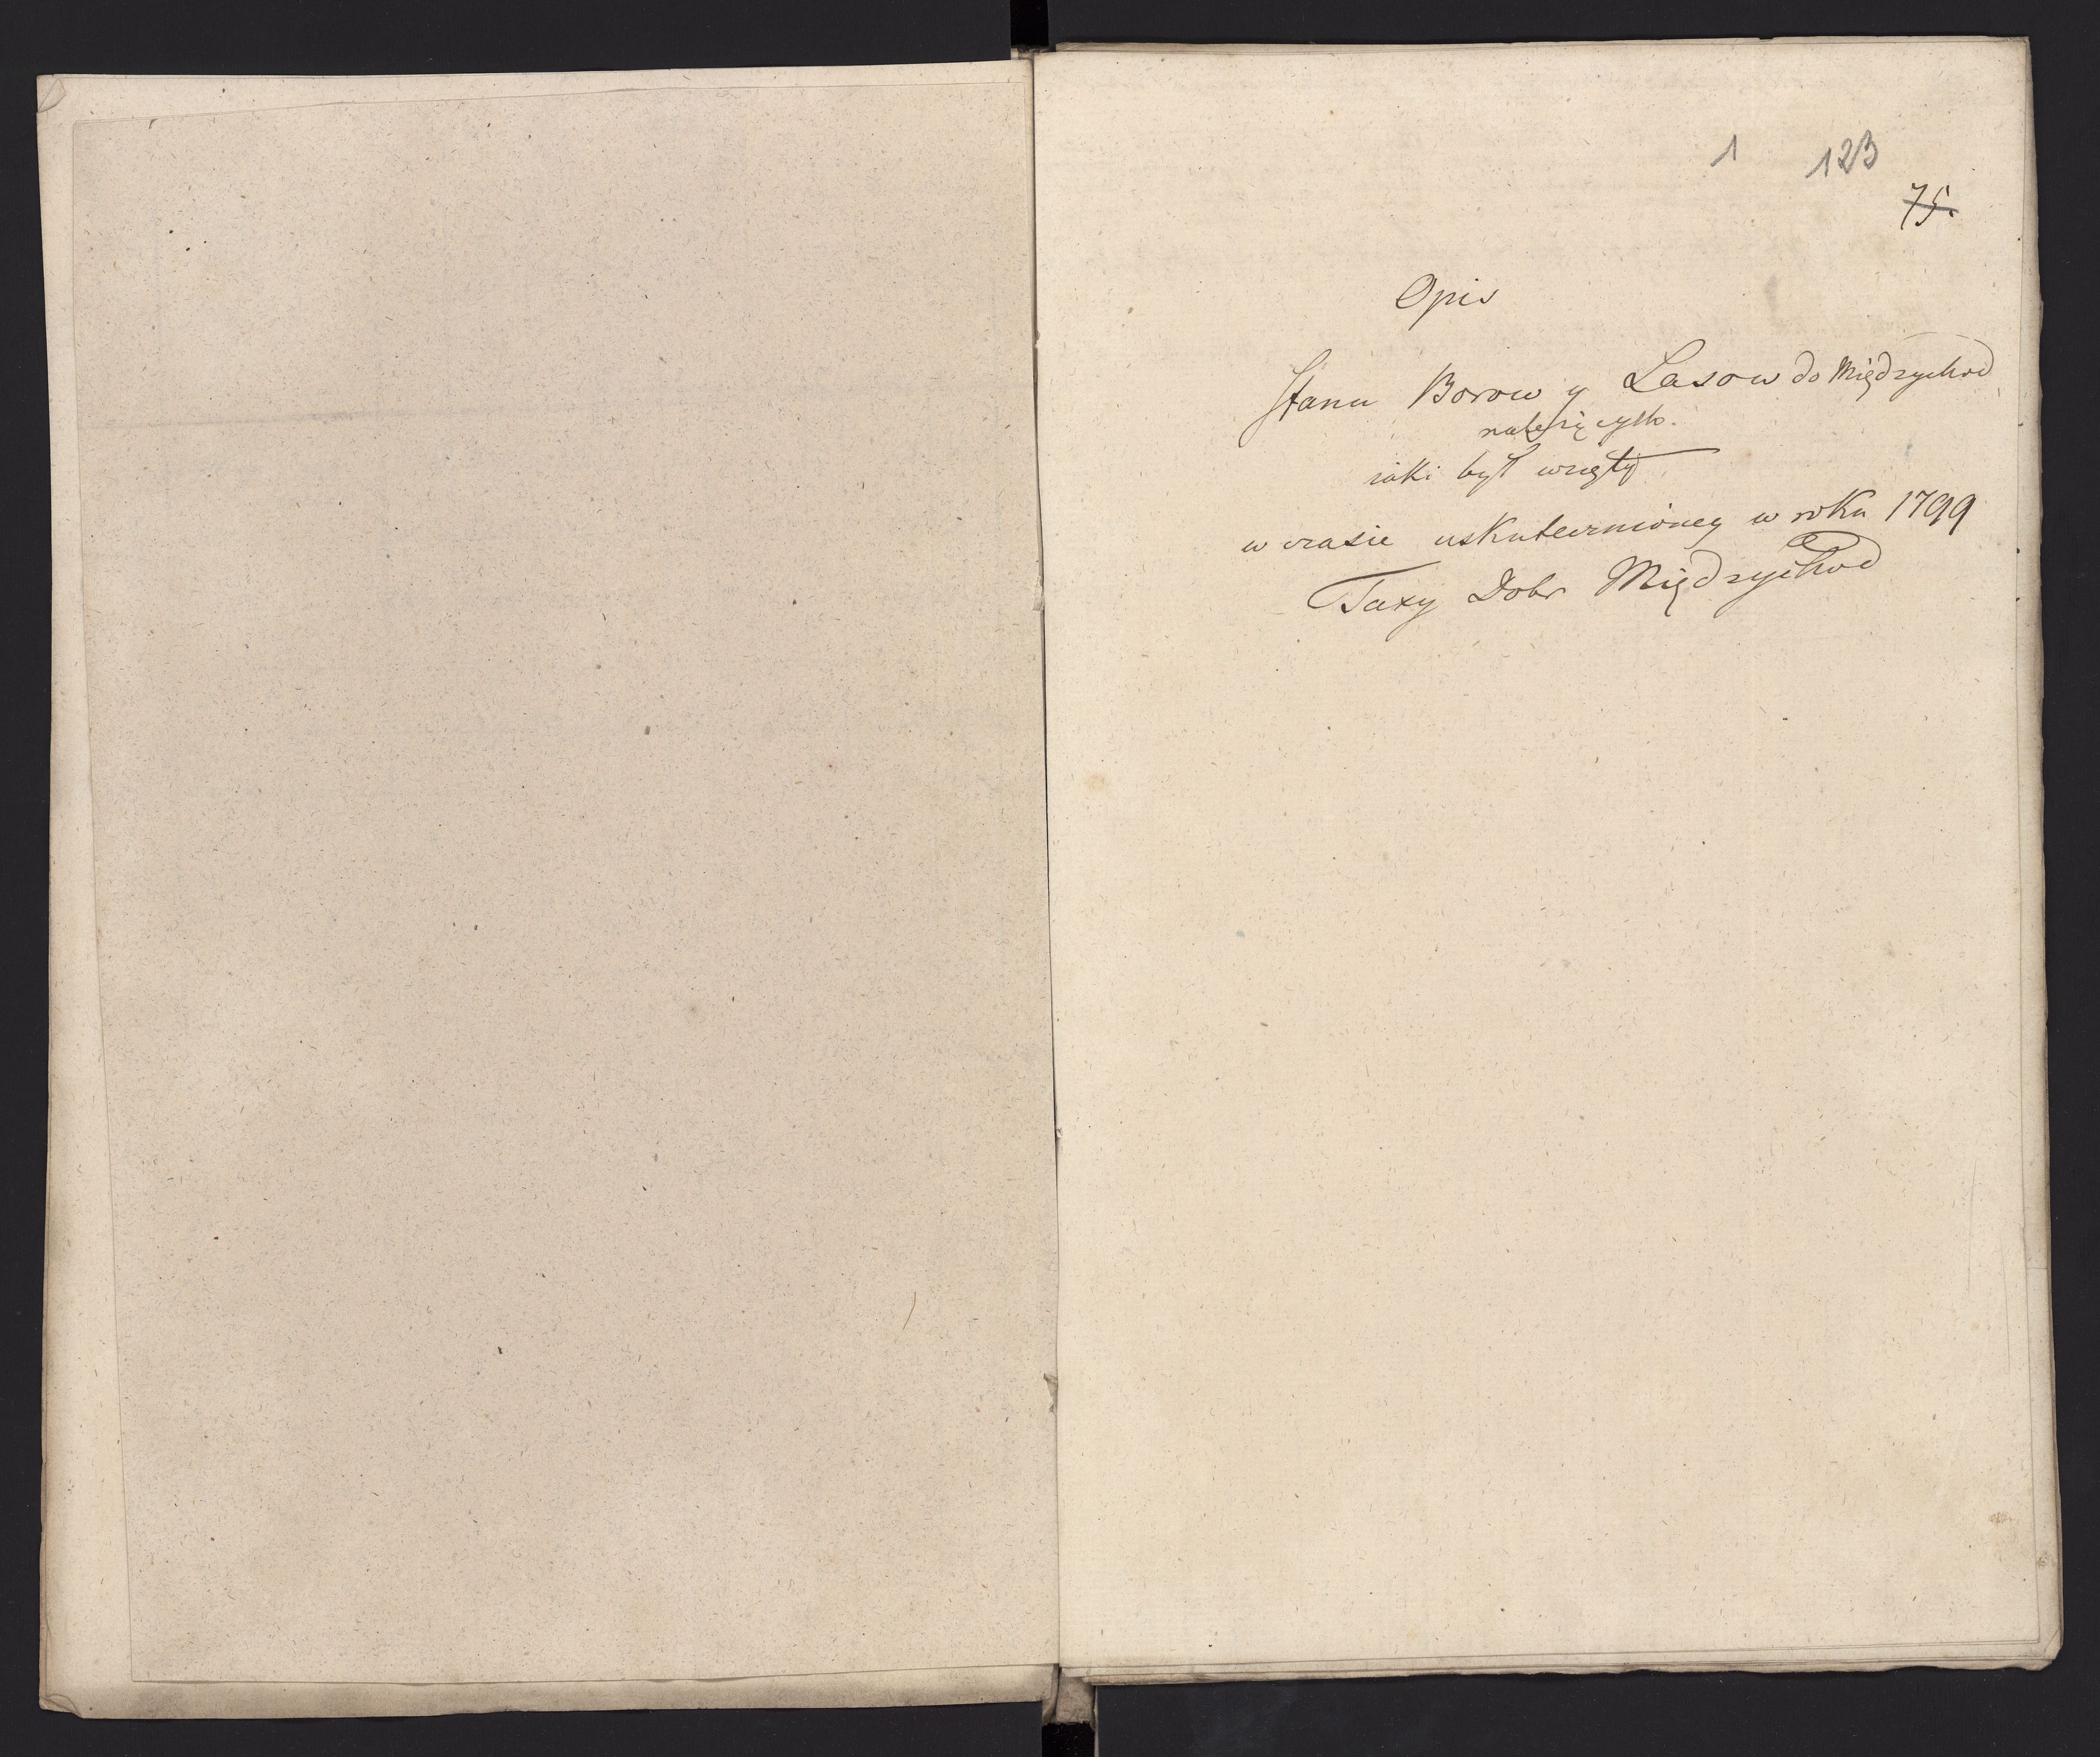 1 123
75.
Opis
Stanu Borow y Lasow do Międzychod
należących.
iaki był wzięty
w czasie uskutecznioney w roku 1799
Taxy Dobr Międzychod